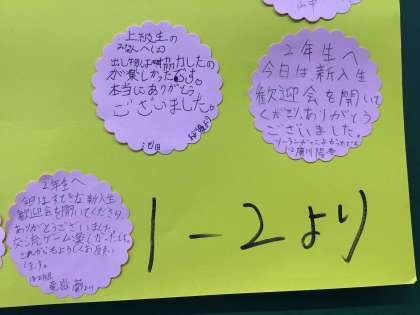 上級生の
みなさんへ
出し物は
が楽しかったです。
本当にありがとう
ございました。
2年生へ
今日は、新入生
歓迎会を開いて
くださり、ありがとう
ございました。
2年生へ
今日はすてきな新入生
歓迎会を開いてくださり
ありがとうございました。
交流ゲーム楽しかったです。
これからもよろしくお願い
します。
1-2より